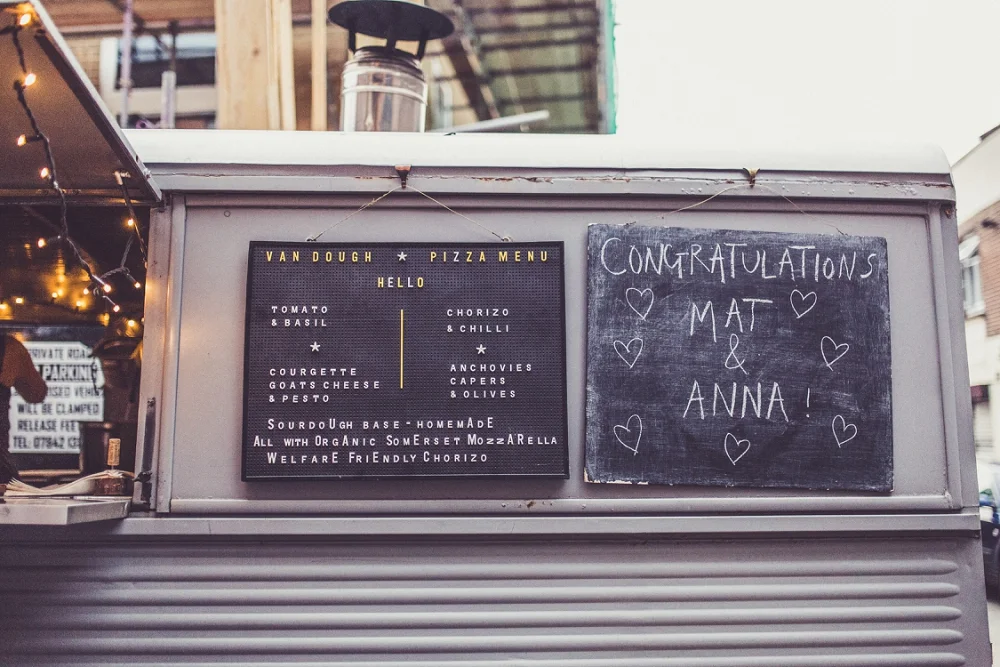 VAN DOUGH ★ PIZZA MENU
HELLO
TOMATO
& BASIL
★
COURGETTE
GOATS CHEESE
& PESTO
CHORIZO
& CHILLI
★
ANCHOVIES
CAPERS
& OLIVES
SOURDOUGH BASE - HOMEMADE
ALL WITH ORGANIC SOMERSET MOZZA'RELLA
WELFARE FRIENDLY CHORIZO
CONGRATULATIONS
MAT
&
ANNA !
PRIVATE ROAD
PARKING
WILL BE CLAMPED
RELEASE FEE
TEL: 07842